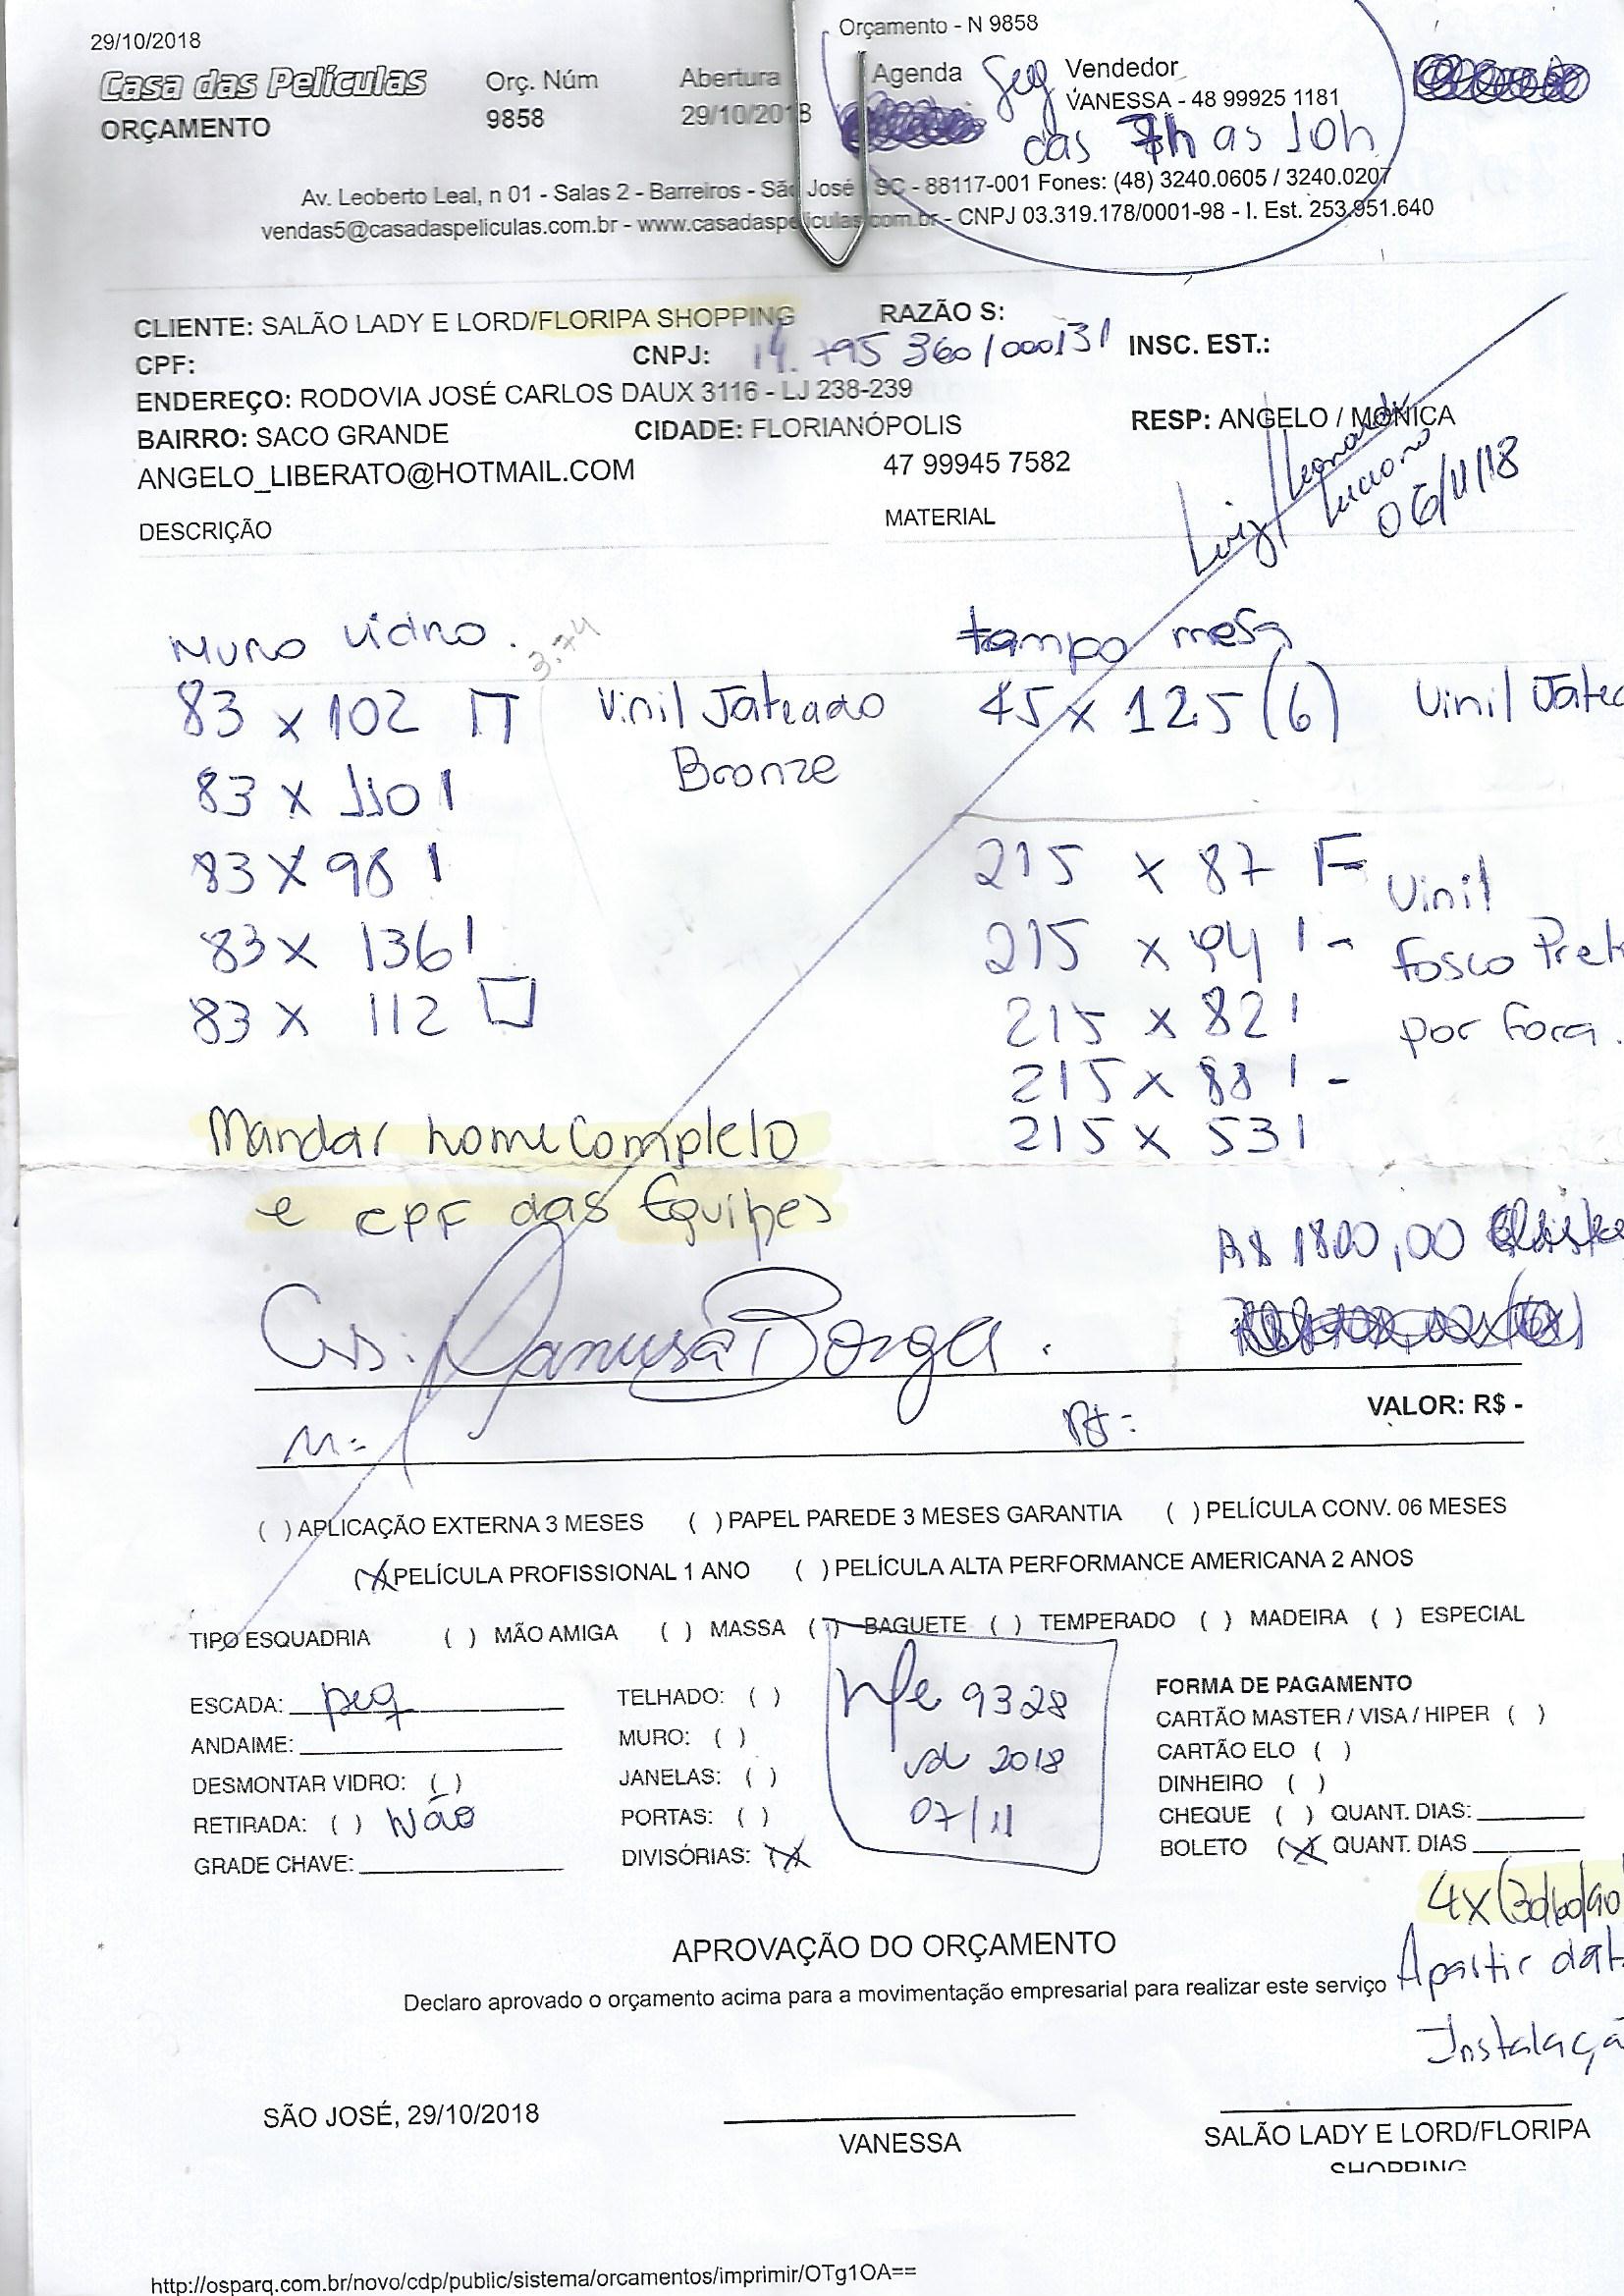 29/10/2018
Orçamento - N 9858
Casa das Películas
ORÇAMENTO
Orç. Núm
9858
Abertura
29/10/2018
Agenda
Seg
Vendedor
VANESSA - 48 99925 1181
das 7h as 10h
Av. Leoberto Leal, n 01 - Salas 2 - Barreiros - São José SC - 88117-001 Fones: (48) 3240.0605 / 3240.0207
vendas5@casadaspeliculas.com.br - www.casadaspeliculas.com.br - CNPJ 03.319.178/0001-98 - I. Est. 253.951.640
CLIENTE: SALÃO LADY E LORD/FLORIPA SHOPPING
RAZÃO S:
CPF:
CNPJ: 14.795 360/000131
INSC. EST.:
ENDEREÇO: RODOVIA JOSÉ CARLOS DAUX 3116 - LJ 238-239
BAIRRO: SACO GRANDE
CIDADE: FLORIANÓPOLIS
RESP: ANGELO / MONICA
ANGELO_LIBERATO@HOTMAIL.COM
47 99945 7582
Luiz/Leonardo
Luciano
06/11/18
DESCRIÇÃO
MATERIAL
Muro vidro.
3.74
83 x 102
Vinil Jateado
Bronze
83 x 110
83 x 98
83 x 136
83 x 112
tampo mesa
45 x 125 (6)
Vinil Jatea
215 x 87
215 x 94
215 x 82
215 x 88
215 x 53
Vinil
Fosco Pret
por fora.
Mandar nome completo
e CPF das Equipes
R$ 1800,00
VALOR: R$ -
M=
R$=
( ) APLICAÇÃO EXTERNA 3 MESES ( ) PAPEL PAREDE 3 MESES GARANTIA ( ) PELÍCULA CONV. 06 MESES
(X) PELÍCULA PROFISSIONAL 1 ANO ( ) PELÍCULA ALTA PERFORMANCE AMERICANA 2 ANOS
TIPO ESQUADRIA ( ) MÃO AMIGA ( ) MASSA ( ) BAGUETE ( ) TEMPERADO ( ) MADEIRA ( ) ESPECIAL
ESCADA: peq
ANDAIME:
DESMONTAR VIDRO: ( )
RETIRADA: ( ) Não
GRADE CHAVE:
TELHADO: ( )
MURO: ( )
JANELAS: ( )
PORTAS: ( )
DIVISÓRIAS: (X)
Nfe 9328
vd 2018
07/11
FORMA DE PAGAMENTO
CARTÃO MASTER / VISA / HIPER ( )
CARTÃO ELO ( )
DINHEIRO ( )
CHEQUE ( ) QUANT. DIAS:
BOLETO (X) QUANT. DIAS
4x (30/60/90
Apartir dat
Instalaçã
APROVAÇÃO DO ORÇAMENTO
Declaro aprovado o orçamento acima para a movimentação empresarial para realizar este serviço
SÃO JOSÉ, 29/10/2018
VANESSA
SALÃO LADY E LORD/FLORIPA
SHOPPING
http://osparq.com.br/novo/cdp/public/sistema/orcamentos/imprimir/OTg1OA==